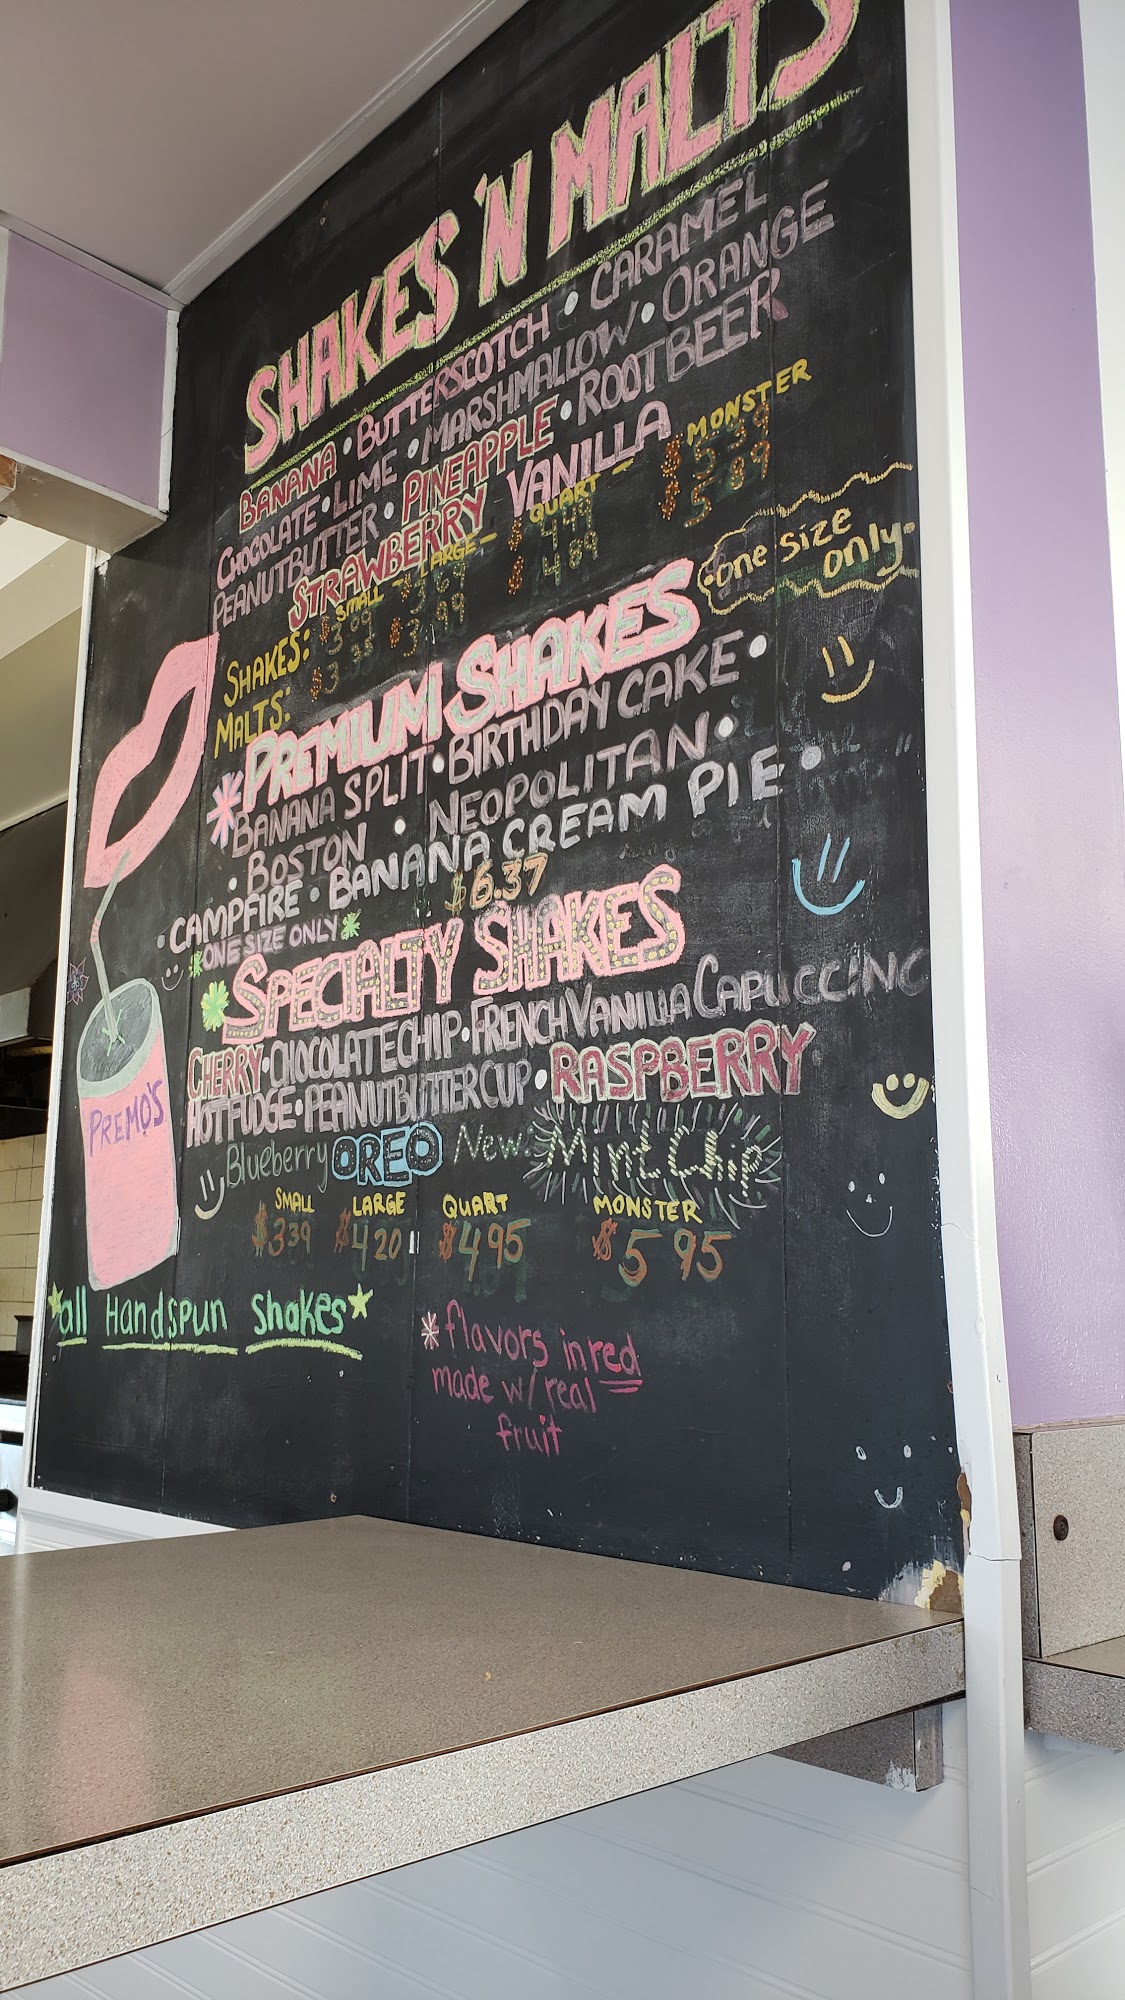 SHAKES 'N MALTS
BANANA • BUTTERSCOTCH • CARAMEL
CHOCOLATE • LIME • MARSHMALLOW • ORANGE
PEANUTBUTTER • PINEAPPLE • ROOTBEER
STRAWBERRY VANILLA
SMALL - LARGE - QUART - MONSTER
SHAKES: $3.09 $3.69 $4.49 $5.39
MALTS: $3.35 $3.99 $4.89 $5.89
PREMIUM SHAKES •one size only•
BANANA SPLIT • BIRTHDAY CAKE •
• BOSTON • NEOPOLITAN •
• CAMPFIRE • BANANA CREAM PIE •
* ONE SIZE ONLY * $6.37
* SPECIALTY SHAKES
CHERRY • CHOCOLATE CHIP • FRENCH VANILLA CAPUCCINO
HOT FUDGE • PEANUTBUTTER CUP • RASPBERRY
Blueberry OREO New: Mint Chip
SMALL LARGE QUART MONSTER
$3 39 $4 20 $4 95 $5 95
PREMO'S
*all Handspun Shakes*
*flavors in red
made w/ real
fruit